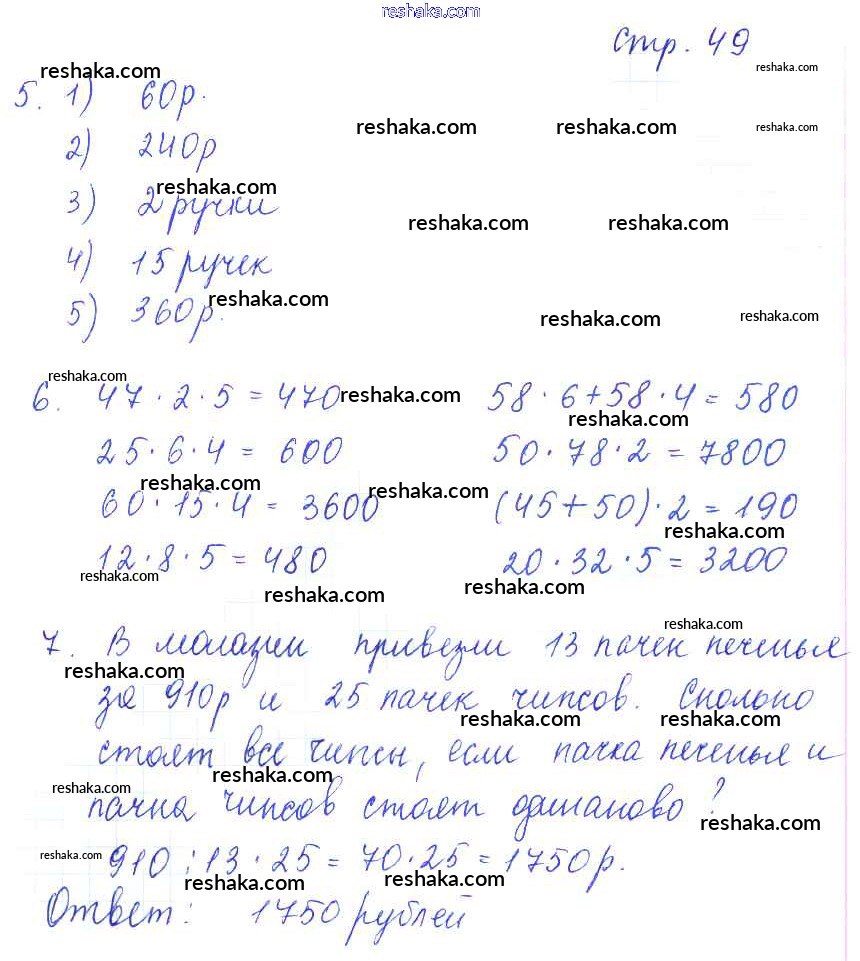 reshaka.com
стр. 49
reshaka.com
reshaka.com
5. 1) 60р.
reshaka.com reshaka.com reshaka.com
2) 240р
reshaka.com
3) 2 ручки
reshaka.com reshaka.com
4) 15 ручек
reshaka.com
5) 360р.
reshaka.com reshaka.com
reshaka.com
6. 47 · 2 · 5 = 470 58 · 6 + 58 · 4 = 580
reshaka.com
reshaka.com
25 · 6 · 4 = 600 50 · 78 · 2 = 7800
reshaka.com reshaka.com
60 · 15 · 4 = 3600 (45 + 50) · 2 = 190
reshaka.com
12 · 8 · 5 = 480 20 · 32 · 5 = 3200
reshaka.com reshaka.com
reshaka.com
reshaka.com
7. В магазин привезли 13 пачек печенья
reshaka.com
за 910р и 25 пачек чипсов. Сколько
reshaka.com reshaka.com
стоят все чипсы, если пачка печенья и
reshaka.com
reshaka.com
пачка чипсов стоят одинаково?
reshaka.com
reshaka.com
910 : 13 · 25 = 70 · 25 = 1750р.
reshaka.com reshaka.com
Ответ: 1750 рублей